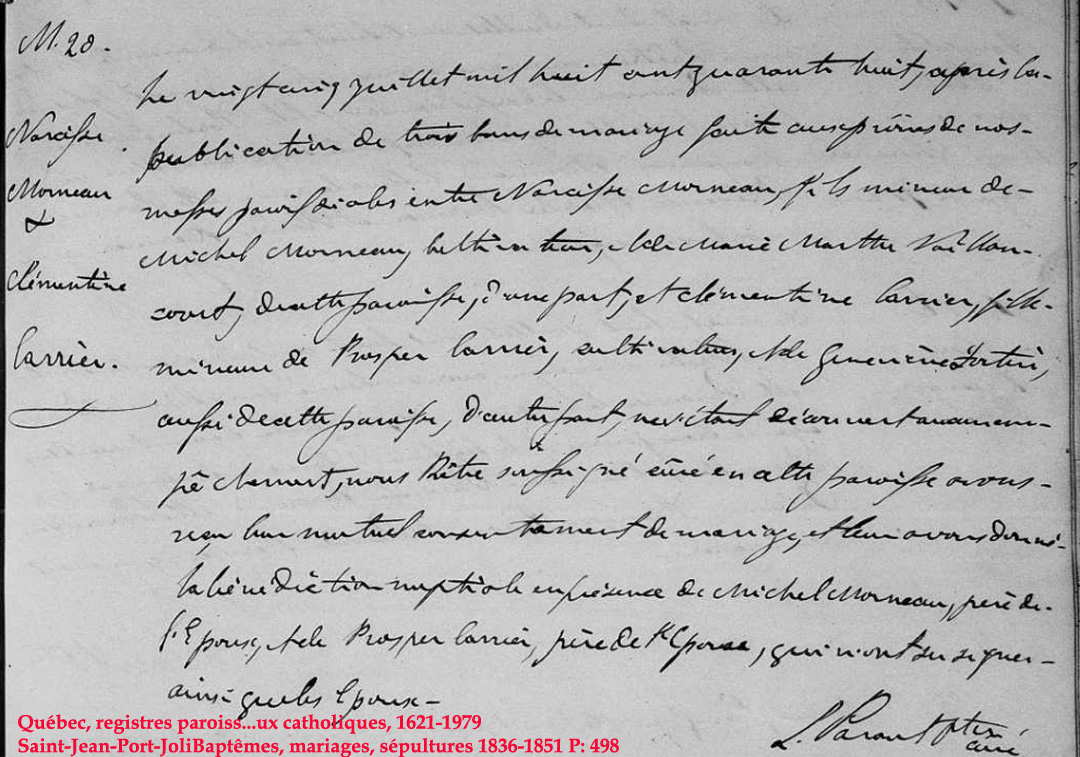 M. 28.
Narcisse
Morneau
&
Clémentine
Carrier.
Le vingt cinq juillet mil huit cent quarante huit, après la
publication de trois bans de mariage faite aux prônes de nos
messes paroissiales entre Narcisse Morneau, fils mineur de
Michel Morneau, cultivateur, & de Marie Marthe Vaillan-
court, de cette paroisse, d'une part, et Clémentine Carrier, fille
mineure de Prosper Carrier, cultivateur, & de Geneviève Fortin,
aussi de cette paroisse, d'autre part, ne s'étant découvert aucun em-
pêchement, nous Prêtre soussigné curé en cette paroisse avons
reçu leur mutuel consentement de mariage, et leur avons donné
la bénédiction nuptiale en présence de Michel Morneau, père de
l'Epoux, & de Prosper Carrier, père de l'Epouse, qui n'ont su signer
ainsi que les Epoux-
L. Parant ptre
curé
Québec, registres paroiss...ux catholiques, 1621-1979
Saint-Jean-Port-JoliBaptêmes, mariages, sépultures 1836-1851 P: 498